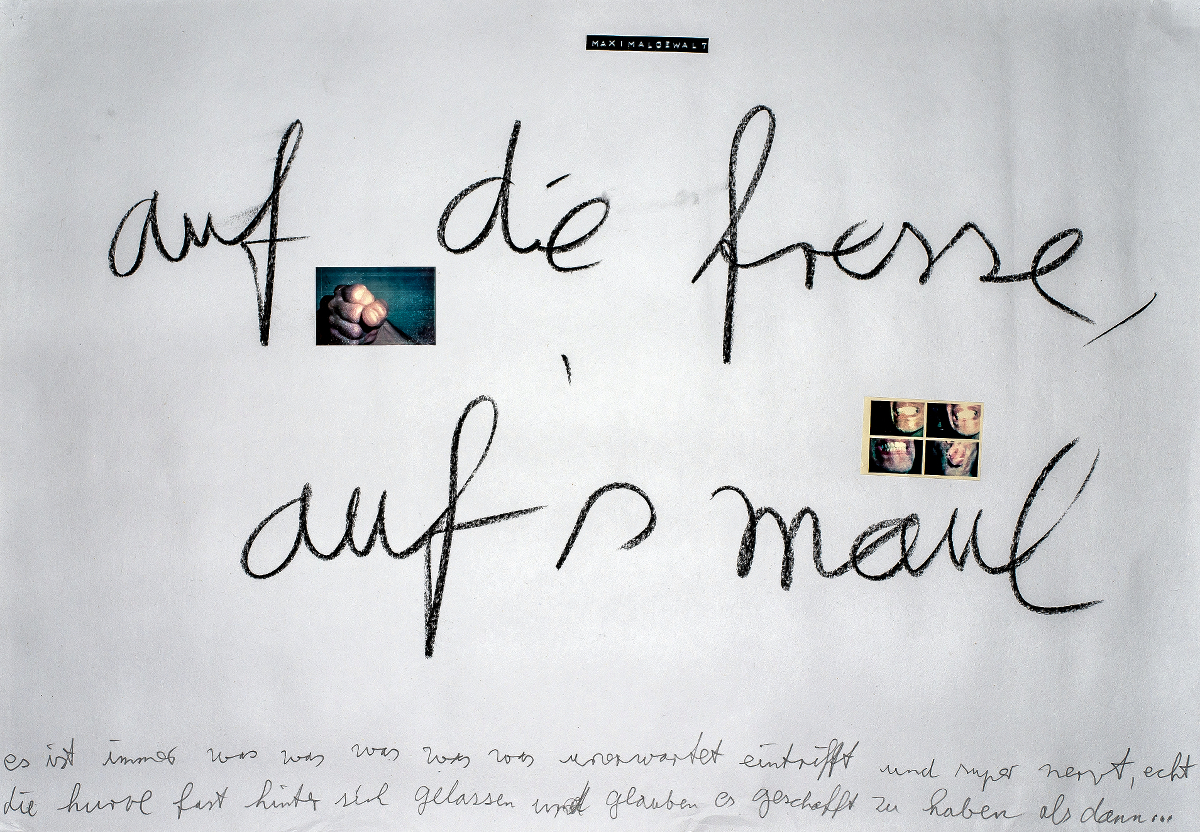 MAXIMALGEWALT
auf die fresse,
auf's maul
es ist immer was was was was was unerwartet eintrifft und super nervt, echt
die kurve fast hinter sich gelassen und glauben es geschafft zu haben als dann...